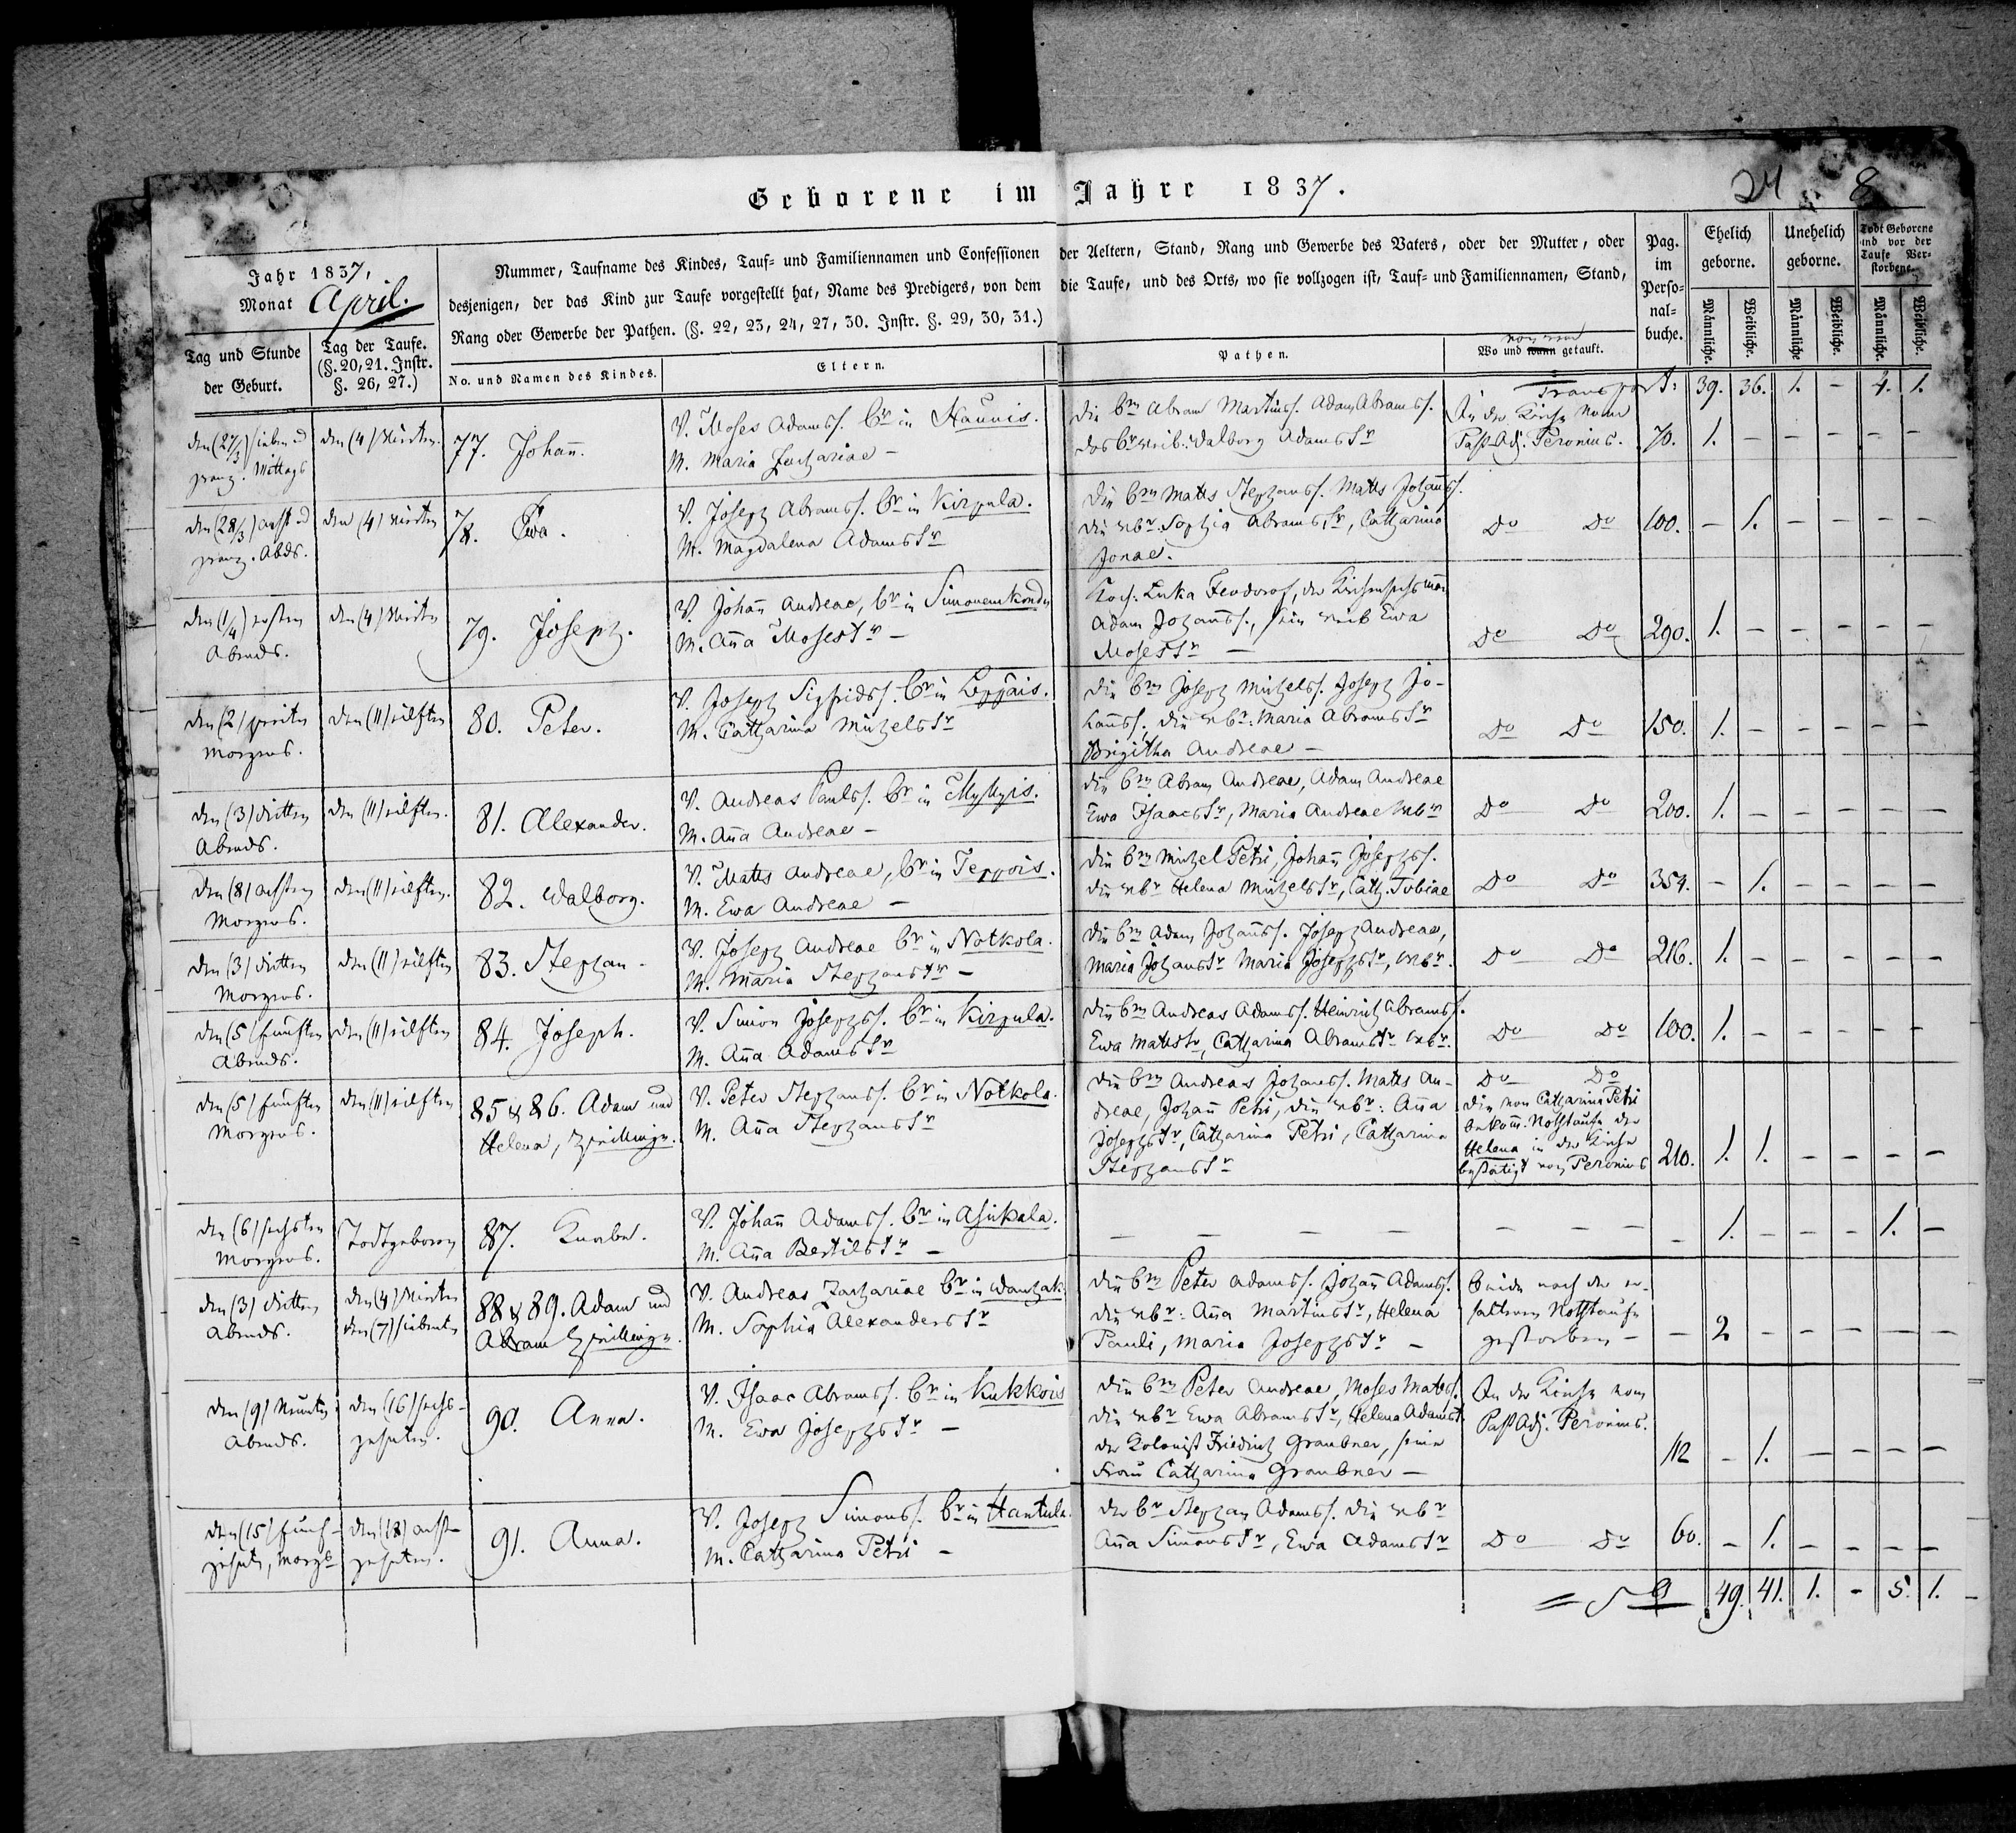 Geborene im Jahre 1837.
24 8
Jahr 1837,
Monat April.
Nummer, Taufname des Kindes, Tauf- und Familiennamen und Confessionen der Aeltern, Stand, Rang und Gewerbe des Vaters, oder der Mutter, oder
desjenigen, der das Kind zur Taufe vorgestellt hat, Name des Predigers, von dem die Taufe, und des Orts, wo sie vollzogen ist, Tauf- und Familiennamen, Stand,
Rang oder Gewerbe der Pathen. (§. 22, 23, 24, 27, 30. Instr. §. 29, 30, 31.)
Tag und Stunde
der Geburt.
Tag der Taufe.
(§. 20, 21. Instr.
§. 26, 27.)
No. und Namen des Kindes.
Eltern.
Pathen.
von wem
Wo und wann getauft.
Pag.
im
Perso-
nal-
buche.
Ehelich
geborne.
Unehelich
geborne.
Todt Geborene
und vor der
Taufe Ver-
storbene.
Männliche.
Weibliche.
Männliche
Weibliche.
Männliche.
Weibliche.
Transport: 39. 36. 1. - 4. 1.
den (27/3) sieben u
zwanz. Mittags
den (4) Vierten.
77. Johañ.
V. Moses Adamss. Br in Haunis.
M. Maria Zachariae -
die Brn Abram Martinss. Adam Abramss.
das Brweib: Walborg Adamstr
In der Kirche vom
Past. Adj. Peronius.
70. 1. - - - - -
den (28/3) acht u
zwanz. Abds.
den (4) Vierten
78. Ewa.
V. Joseph Abramss. Br in Kirpula.
M. Magdalena Adamstr
die Brn Matts Stephanss. Matts Johañss.
die wbr: Sophia Abramstr, Catharina
Jonae.
Do Do 100. - 1. - - - -
den (1/4) ersten
Abends.
den (4) Vierten
79. Joseph.
V. Johañ Andreae, Br in Simonenkondu
M. Aña Mosestr -
Koch: Luka Feodorof, der Kirchen
Adam Johañss., sein weib Ewa
Mosestr -
Do Do 290. 1. - - - - -
den (2) zweiten
Morgens.
den (11) eilften
80. Peter.
V. Joseph Sigfridss. Br in Leppäis.
M. Catharina Michelstr
die Brn Joseph Michelss. Joseph Jo-
hañss., die wbr: Maria Abramstr
Brigitha Andreae -
Do Do 150. 1. - - - - -
den (3) dritten
Abends.
den (11) eilften.
81. Alexander.
V. Andreas Paulss. Br in Myllyis.
M. Aña Andreae -
die Brn Abram Andreae, Adam Andreae
Ewa Isaacstr, Maria Andreae wbr
Do Do 200. 1. - - - - -
den (8) achten
Morgens.
den (11) eilften.
82. Walborg.
V. Matts Andreae, Br in Teppois.
M. Ewa Andreae -
die Brn Michel Petri, Johañ Josephss.
die wbr Helena Michelstr, Cath. Tobiae
Do Do 354. - 1. - - - -
den (3) dritten
Morgens.
den (11) eilften
83. Stephan -
V. Joseph Andreae Br in Notkola.
M. Maria Stephanstr -
die Brn Adam Johañss. Joseph Andreae,
Maria Johanstr Maria Josephstr, wbr.
Do Do 216. 1. - - - - -
den (5) fünften
Abends.
den (11) eilften
84. Joseph.
V. Simon Josephss. Br in Kirpula.
M. Aña Adamstr
die Brn Andreas Adamss. Heinrich Abramss.
Ewa Mattstr, Catharina Abramstr wbr.
Do Do 100. 1. - - - - -
den (5) fünften
Morgens.
den (11) eilften
85 & 86. Adam und
Helena, Zwillinge.
V. Peter Stephanss. Br in Notkola.
M. Aña Stephanstr
die Brn Andreas Johanss. Matts An-
dreae, Johañ Petri, die wbr: Aña
Josephstr, Catharina Petri, Catharina
Stephanstr
Do Do
die von Catharina Petri
bekom̃. Nothtaufe der
Helena in der Kirche
bestätigt von Peronius
210. 1. 1. - - - -
den (6) sechsten
Morgens.
Todtgeboren
87. Knabe.
V. Johañ Adamss. Br in Asikala.
M. Aña Bertilstr -
- - - - - - - - 1. - - - 1. -
den (3) dritten
Abends.
den (4) Vierten
den (7) siebenten
88 & 89. Adam und
Abram Zwillinge.
V. Andreas Zachariae Br in Wanhak.
M. Sophia Alexanderstr
die Brn Peter Adamss. Johañ Adamss.
die wbr: Aña Martinstr, Helena
Pauli, Maria Josephstr -
beide nach der er-
haltenen Nothtaufe
gestorben -
- 2 - - - - -
den (9) Neunten
Abends.
den (16) sechs-
zehnten.
90. Anna.
V. Isaac Abramss. Br in Kukkois
M. Ewa Josephstr -
die Brn Peter Andreae, Moses Mattss.
die wbr Ewa Abramstr, Helena Adamst
der Kolonist Friedrich Graubner, seine
Frau Catharina Graubner -
In der Kirche vom
Past Adj. Peronius.
112 - 1. - - - -
den (15) fünf-
zehnten, Morgs
den (18) acht-
zehnten.
91. Anna.
V. Joseph Simonss. Br in Hantula.
M. Catharina Petri -
der Br Stephan Adamss. die wbr
Aña Simonstr, Ewa Adamstr
Do Do 60. - 1. - - - -
49. 41. 1. - 5. 1.